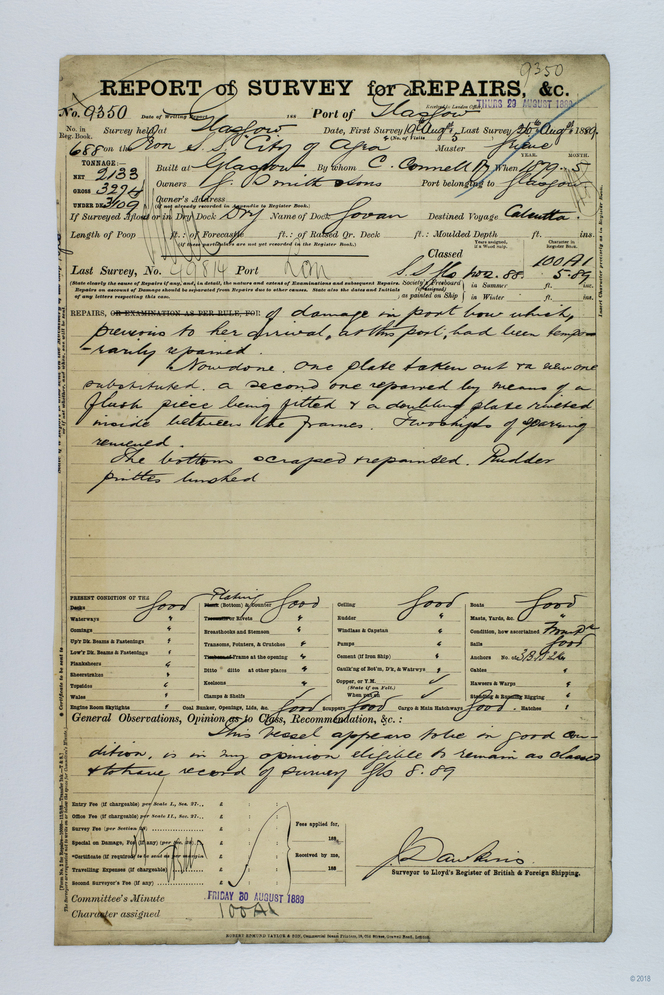 9350
REPORT of SURVEY for REPAIRS, &c.
Received in London Office THURS 29 AUGUST 1889
No. 9350 Date of Writing Report 188 Port of Glasgow
No. in Reg. Book. Survey held at Glasgow Date, First Survey 19th Augt Last Survey 26th Augt 1889
(No. of Visits 5
688 on the Iron S. S. City of Agra Master
TONNAGE:— YEAR. MONTH.
NET 2133 Built at Glasgow By whom C. Connell When 1879 5
GROSS 3274 Owners G. Smith & Sons Port belonging to Glasgow
UNDER DK 3109 Owner's Address
(if not already recorded in Appendix to Register Book.)
If Surveyed Afloat or in Dry Dock Dry Name of Dock Govan Destined Voyage Calcutta
Length of Poop ft.: of Forecastle ft.: of Raised Qr. Deck ft.: Moulded Depth ft. ins.
(if these particulars are not yet recorded in the Register Book.)
Classed 100A1
Last Survey, No. 49814 Port Lon S.S. Gls No2. 88. 5.89
(State clearly the cause of Repairs if any, and, in detail, the nature and extent of Examinations and subsequent Repairs.
Repairs on account of Damage should be separated from Repairs due to other causes. State also the dates and Initials
of any letters respecting this case.
in Summer ft. ins.
as painted on Ship in Winter ft. ins.
REPAIRS, OR EXAMINATION AS PER RULE, FOR of damage in port bow which,
previous to her arrival, at this port, had been tempo-
-rarily repaired.
Now done. One plate taken out & a new one
substituted. a second one repaired by means of a
flush piece being fitted & a doubling plate riveted
inside between the frames. Two strips of sparring
renewed.
The bottom scraped & repainted. Rudder
pintles bushed
PRESENT CONDITION OF THE
Decks Good Plating (Bottom) & Counter Good Ceiling Good Boats Good
Waterways " or Rivets " Rudder " Masts, Yards, &c. "
Comings " Breasthooks and Stemson " Windlass & Capstan " Condition, how ascertained From Dk
Up'r Dk. Beams & Fastenings " Transoms, Pointers, & Crutches " Pumps " Sails Good
Low'r Dk. Beams & Fastenings " Frame at the opening " Cement (if Iron Ship) " Anchors No. of 3B 1S 2K
Planksheers " Ditto ditto at other places " Caulk'ng of Bot'm, D'k, & Waterwys " Cables "
Sheerstrakes " Keelsons " Copper, or Y.M. ✓ Hawsers & Warps "
Topsides " Clamps & Shelfs (State if on Felt.) Standing & Running Rigging "
Wales " When put on ✓
Engine Room Skylights " Coal Bunker, Openings, Lids, &c. Good Scuppers Good Cargo & Main Hatchways Good . Hatches "
General Observations, Opinion as to Class, Recommendation, &c. :
This vessel appears to be in good con-
dition, is in my opinion eligible to remain as classed
& to have record of survey Gls 8.89
Entry Fee (if chargeable) per Scale I., Sec. 27.., £ : :
Office Fee (if chargeable) per Scale II., Sec. 27.., £ : :
Survey Fee (per Section 28) £ : : Fees applied for,
Special on Damage, Fee (if any) (per Sec. 28) £ : : 188
*Certificate (if required) to be sent as per margin £ : : Received by me,
Travelling Expenses (if chargeable) £ : : 188
Second Surveyor's Fee (if any) £ : :
J. Dawkins.
Surveyor to Lloyd's Register of British & Foreign Shipping.
Committee's Minute FRIDAY 30 AUGUST 1889
Character assigned 100A1
ROBERT EDMUND TAYLOR & SON, Commercial Steam Printers, 19, Old Street, Goswell Road, London.
© 2018